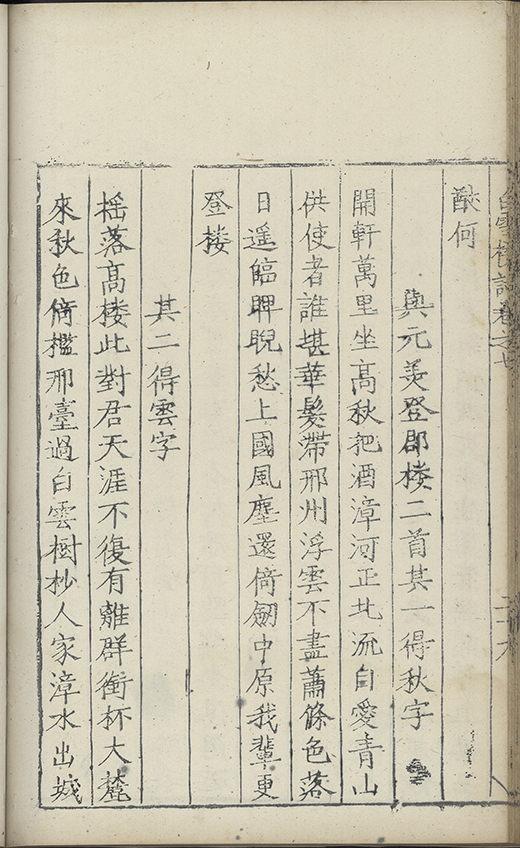 白雪樓詩卷之七
酣何
與元美登郡楼二首其一得秋字
開軒萬里坐高秋把酒漳河正北流自愛青山
供使者誰堪華髮滯邢州浮雲不盡蕭條色落
日遥臨睥睨愁上國風塵還倚劒中原我輩更
登楼
其二得雲字
揺落高楼此對君天涯不復有離群銜杯大麓
來秋色倚檻邢臺過白雲樹杪人家漳水出城